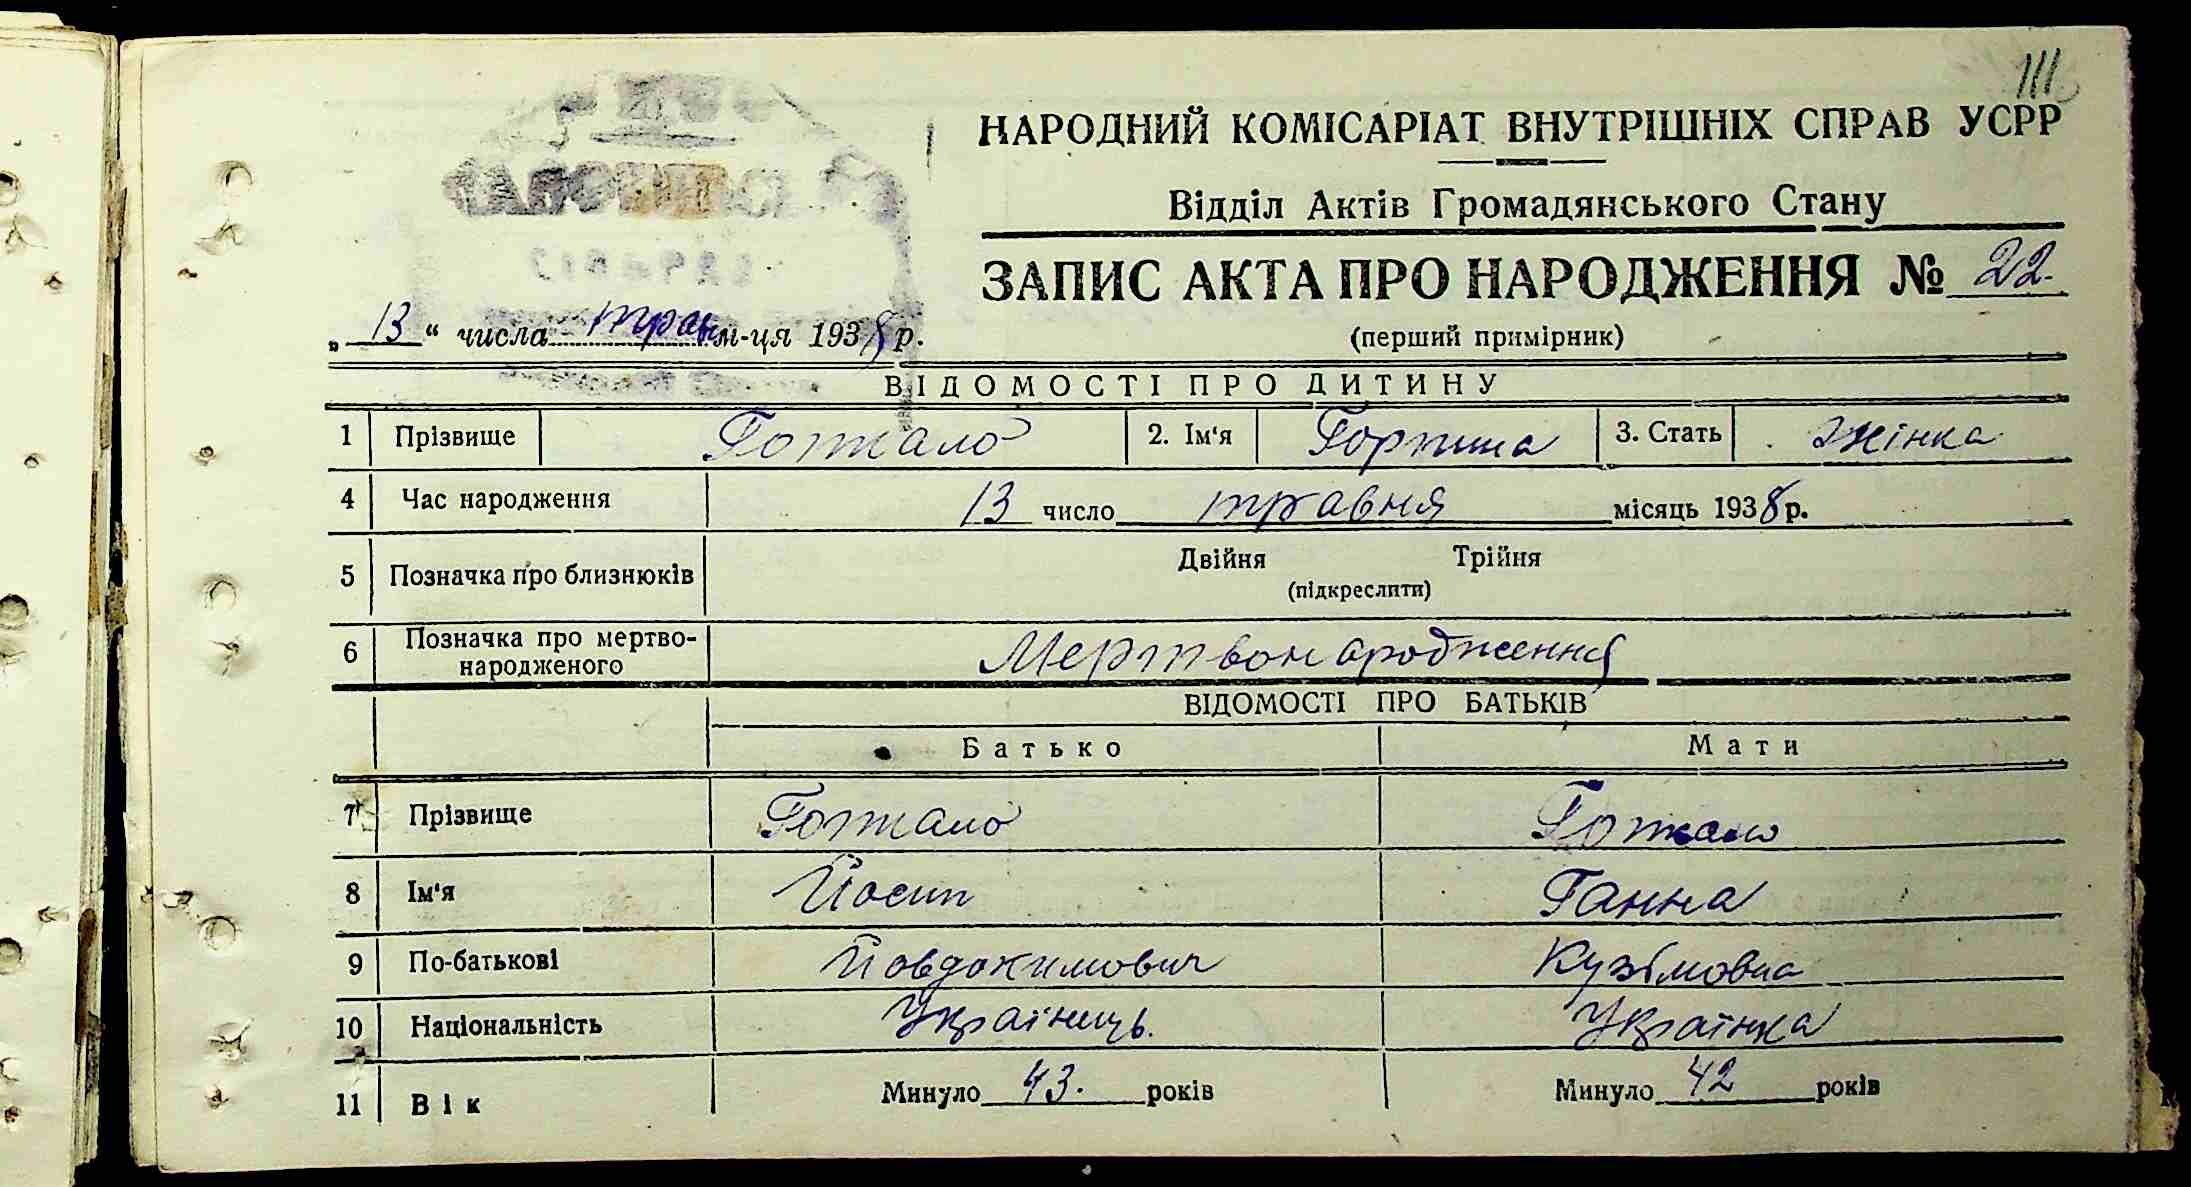 111
НАРОДНИЙ КОМІСАРІАТ ВНУТРІШНІХ СПРАВ УСРР
Відділ Актів Громадянського Стану
ЗАПИС АКТА ПРО НАРОДЖЕННЯ № 22.
„ 13 “ числа трав м-ця 1938 р.
(перший примірник)
ВІДОМОСТІ ПРО ДИТИНУ
1 Прізвище Готкало 2. Ім'я Горпина 3. Стать жінка
4 Час народження 13 число травня місяць 1938 р.
5 Позначка про близнюків Двійня Трійня
(підкреслити)
6 Позначка про мертво-
народженого Мертвонародження
ВІДОМОСТІ ПРО БАТЬКІВ
Батько Мати
7 Прізвище Готкало Готкало
8 Ім'я Йосип Ганна
9 По-батькові Йовдокимович Кузімовна
10 Національність Українець. Українка
11 Вік Минуло 43. років Минуло 42 років